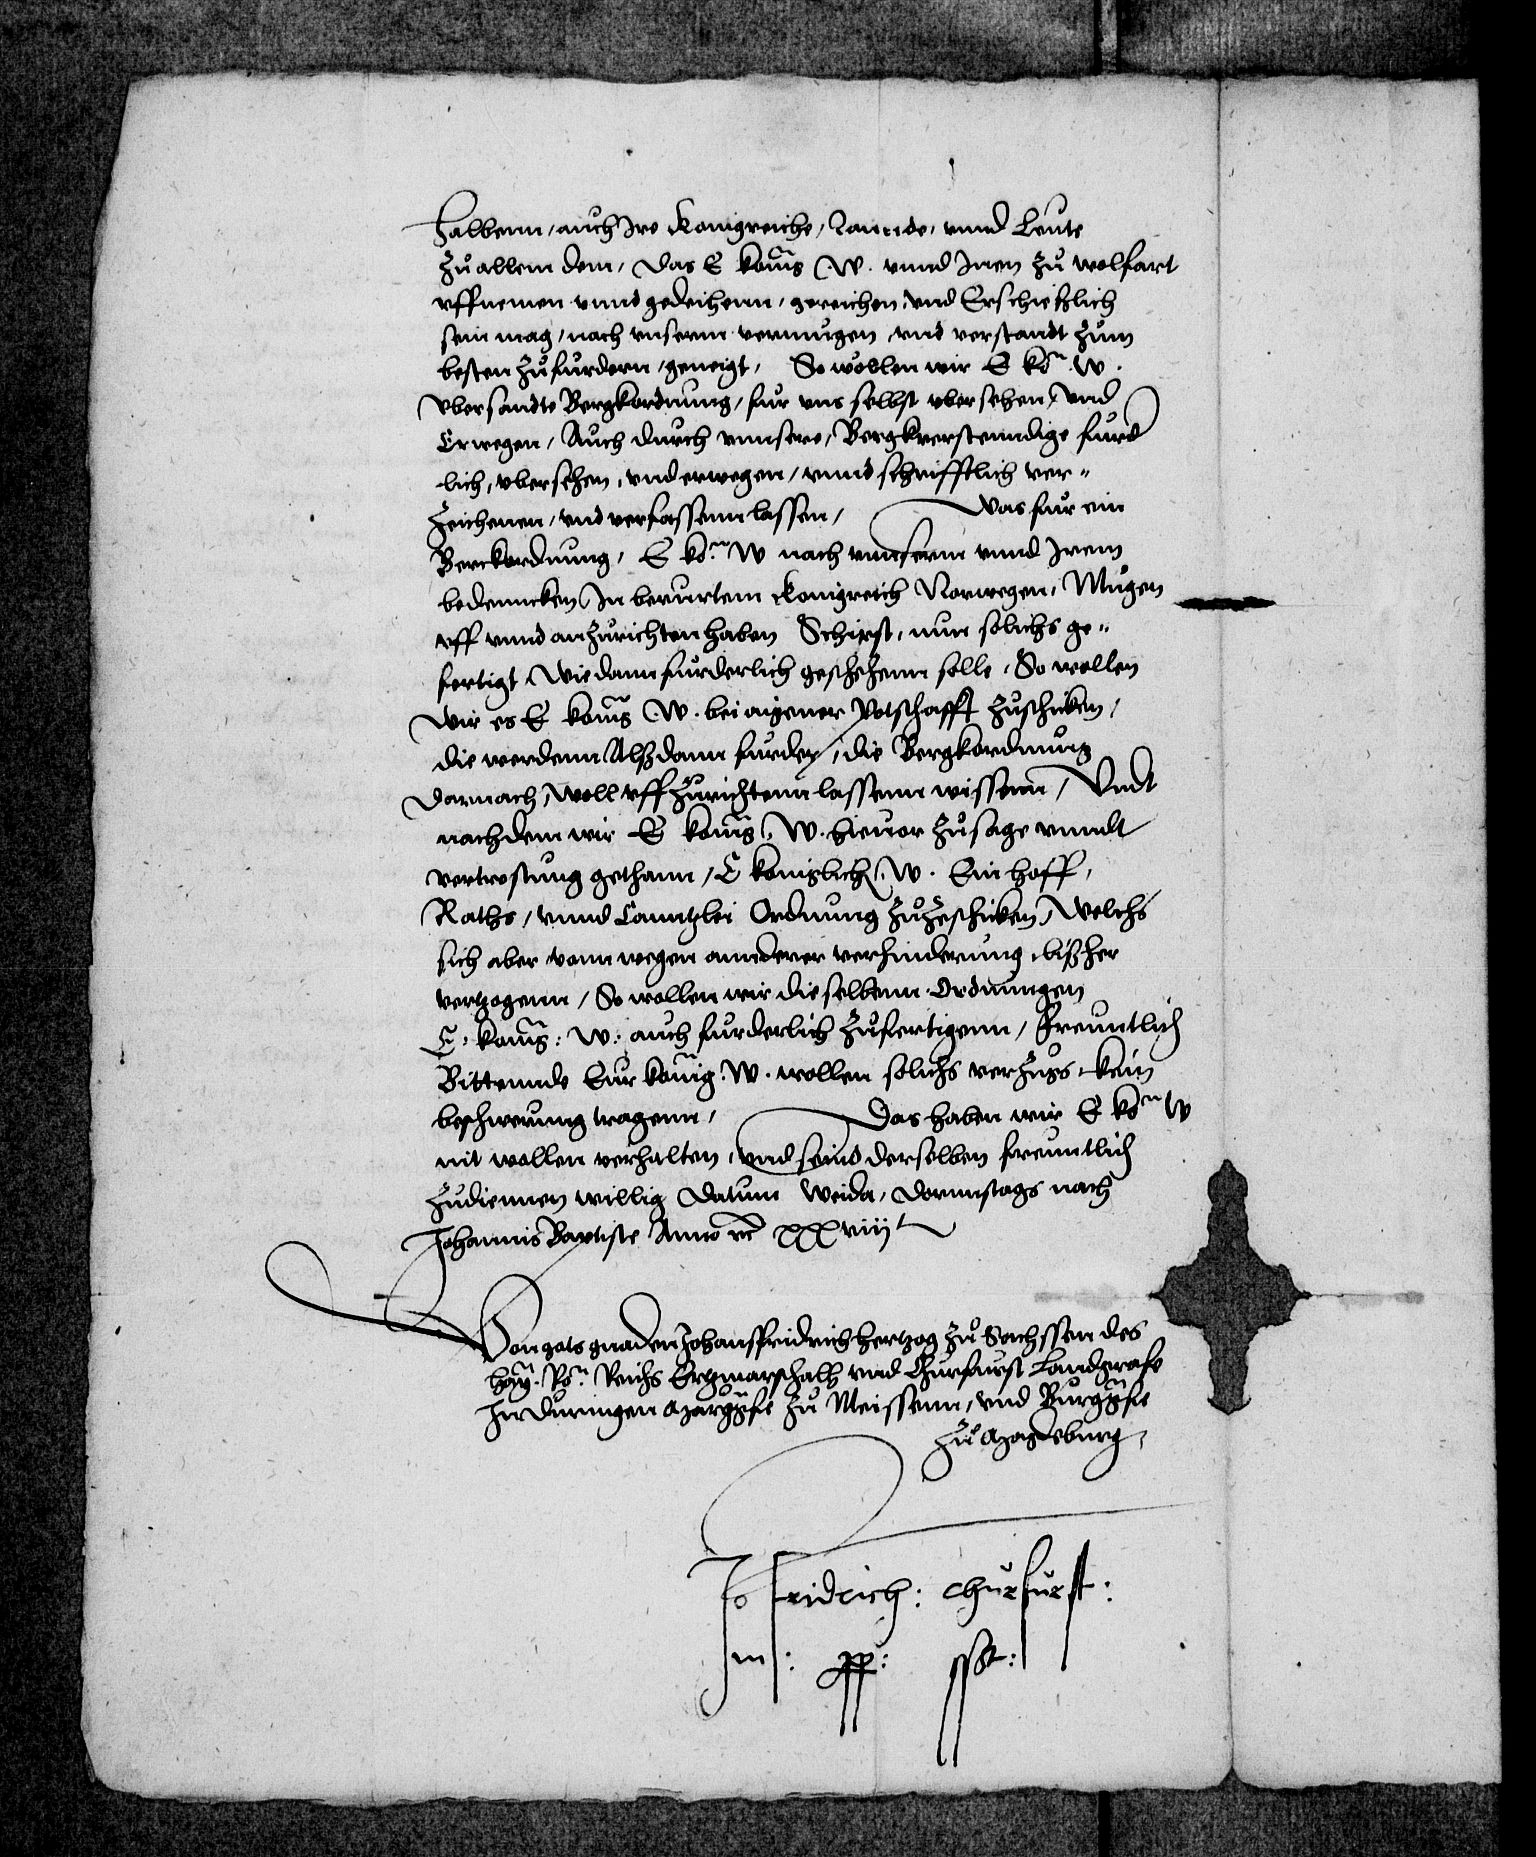 halbenn, auch Ire Konigreiche, Lannde, vnnd Leute
zu allem dem, Das E konig W. vnnd Inen zu wolfart
vffnemen vnnd gedeihenn, gereichen vnd Erschießlich
sein mag, nach vnserm vermugen vnd verstandt zum
besten zufurdern, geneigt, So wollen wir E ko. W.
vbersandte Bergkordnung, fur vns selbst vbersehen, vnd
Erwegen, Auch durch vnnsere, Bergkverstenndige furd
lich, vbersehen, vnd erwegen, vnnd schrifftlich ver-
zeichenen, vnd verfassenn lassen, Was fur ein
Berckordnung, E ko. W nach vnnserm vnnd Irem
bedenncken In berurtem Konigreich Norwegen, Mugen
vff vnnd anzurichten haben Schirst, nun solichs ge-
fertigt Wie dann furderlich geschehenn solle, So wollen
Wir es E konig W. bei aigener Potschafft zuschicken,
die werdenn Alßdann furder, die Bergkordnung
darnach, Woll vffzurichtenn lassenn wissenn, Vndt
nachdem wir E konig W. hieuor zusage vnndt
vertrostung gethann, E koniglich W. Ein hoff,
Raths, vnnd Canntzlei Ordnung zuzeschicken, Welchs
sich aber vonn wegen annderer verhinderung, bißher
vertzogenn, So wollen wir dieselbenn Ordnungen
E. konig: W: auch furderlich zufertigenn, Freuntlich
Bittennde Eur konig. W. wollen solichs verzugs kein
beschwerung tragenn, Das haben wir E ko. W
nit wollen verhalten, vnd seind derselben freuntlich
zudiennen willig Datum Weida, Donnrstags nach
Johannis Baptiste Anno rc XXXviij
Von gots gnaden Johansfridrich hertzog zu Sachssen des
hay. Ro. Reichs Ertzmarschalh vnd Churfurst Landgrafe
In Duringen Marggrafe zu Meissenn, vnd Burggrafe
zu Magdeburg.
Jo Fridrich: churfurst:
mp: sst: